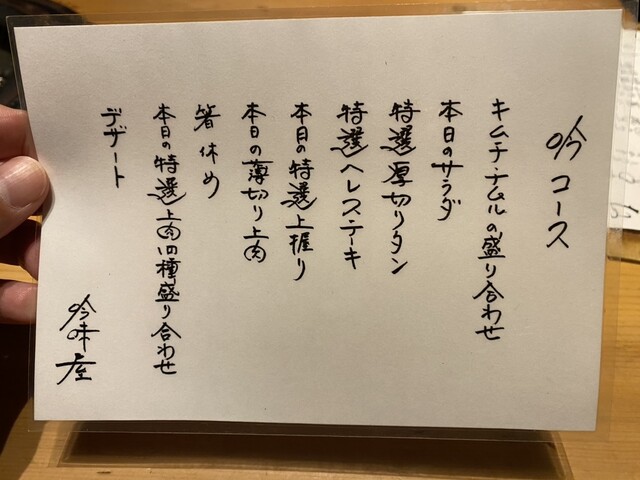 吟コース
キムチ・ナムルの盛り合わせ
本日のサラダ
特選厚切りタン
特選ヘレステーキ
本日の特選上握り
本日の薄切り上肉
箸休め
本日の特選上肉四種盛り合わせ
デザート
吟味屋